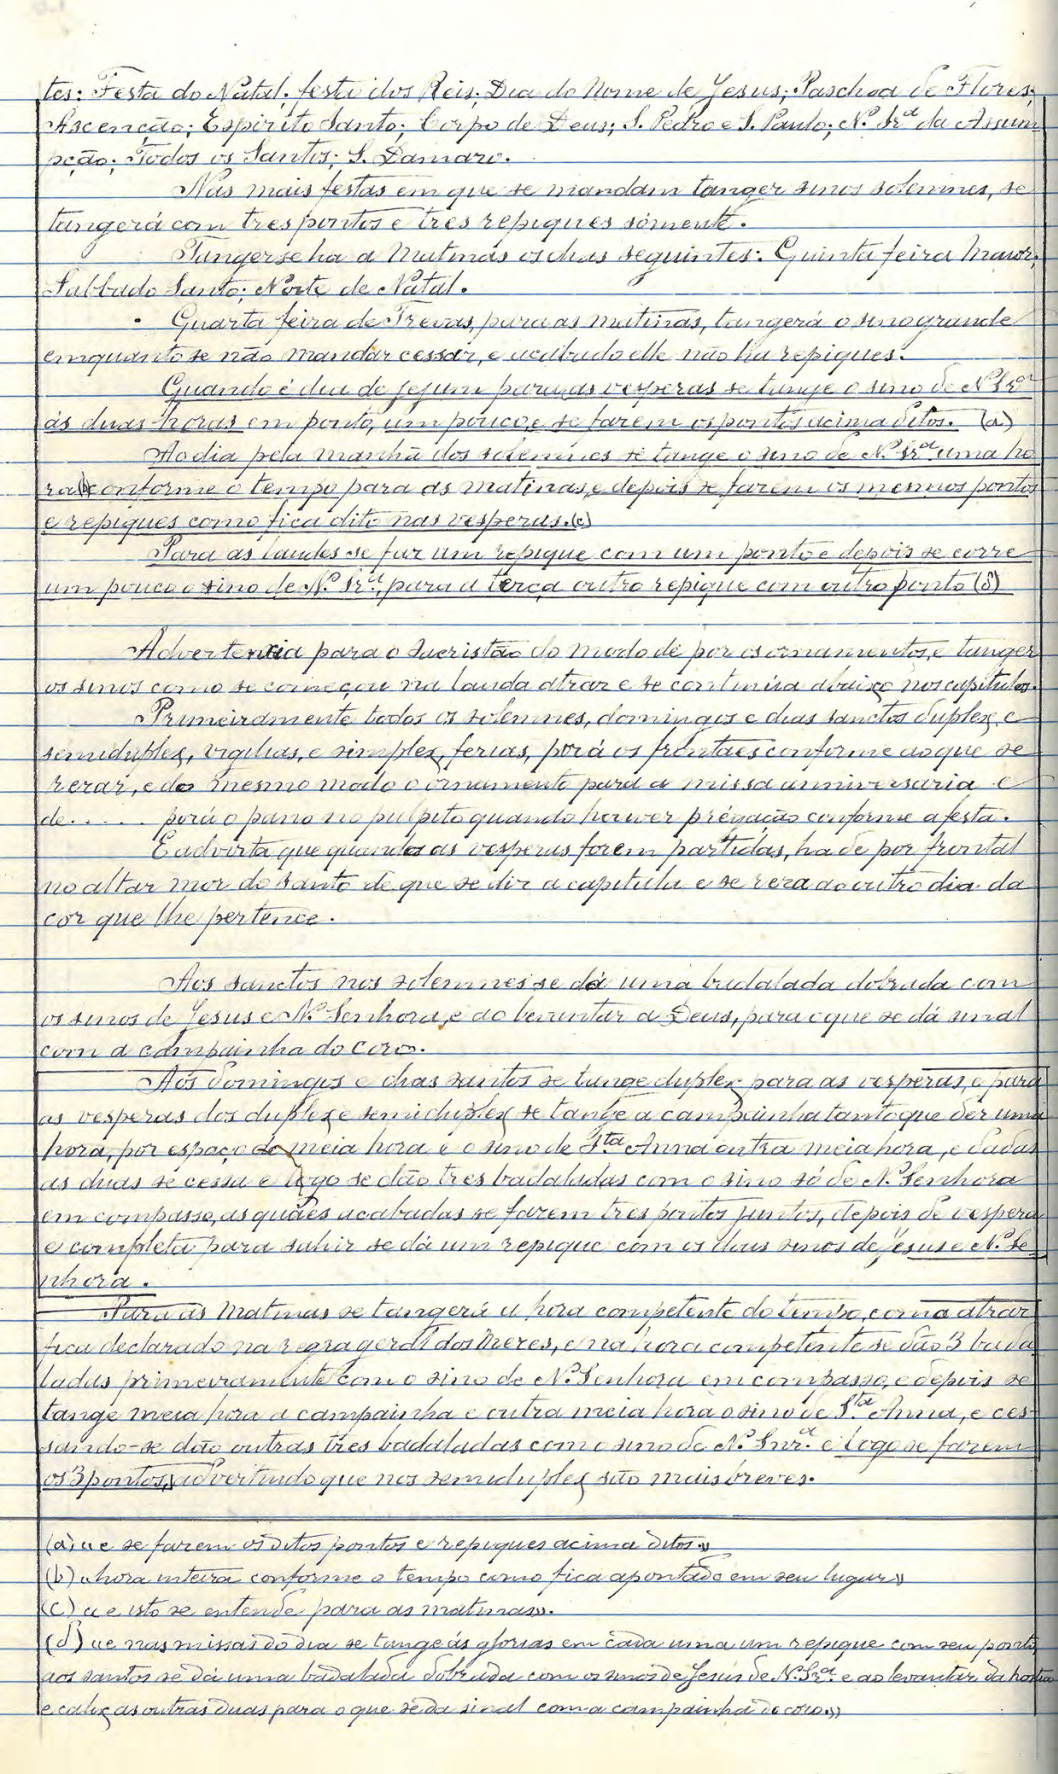 tes: Festa do Natal; festa dos Reis; Dia do Nome de Jesus; Paschoa de Flores;
Ascenção; Espirito Santo; Corpo de Deus; S. Pedro e S. Paulo; N.ª Sr.ª da Assum
pção; Todos os Santos; S. Damazo.
Nas mais festas em que se mandam tanger sinos solemnes, se
tangerá com tres pontos e tres repiques sómente.
Tangerseha a Matinas os dias seguintes: Quinta feira Maior;
Sabbado Santo; Noite de Natal.
Quarta feira de Trevas, para as matinas, tangerá o sino grande
emquanto se não mandar cessar, e acabado elle não ha repiques.
Quando é dia de jejum para as vesperas se tange o sino de N.ª Sr.ª
ás duas horas em ponto, um pouco, e se fazem os pontos acima ditos. (a)
Ao dia pela manhã dos solemnes se tange o sino de N.ª Sr.ª uma ho
ra (b) conforme o tempo para as matinas, e depois se fazem os mesmos pontos
e repiques como fica dito nas vesperas. (c)
Para as laudes se faz um repique com um ponto e depois se corre
um pouco o sino de N.ª Sr.ª, para a terça outro repique com outro ponto (d)
Advertencia para o sacristão do modo de por os ornamentos, e tanger
os sinos como se começou na lauda atraz e se continúa abaixo nos capitulos.
Primeiramente todos os solemnes, domingos e dias sanctos duplex, e
semiduplex, vigilias, e simplex, ferias, porá os frontaes conforme ao que se
rezar, e do mesmo modo o ornamento para a missa anniversaria e
de..... porá o pano no pulpito quando houver prégação conforme a festa.
E advirta que quando as vesperas forem partidas, ha de por frontal
no altar mor do santo de que se diz a capitula e se reza ao outro dia da
cor que lhe pertence.
Aos sanctos nos solemnes se dá uma badalada dobrada com
os sinos de Jesus e N.ª Senhora, e ao levantar a Deus, para o que se dá sinal
com a campainha do coro.
Aos domingos e dias santos se tange duplex para as vesperas, e para
as vesperas dos duplex e semiduplex se tange a campainha tanto que der uma
hora, por espaço de meia hora e o sino de S.ta Anna outra meia hora, e dadas
as duas se cessa e logo se dão tres badaladas com o sino só de N.ª Senhora
em compasso, as quaes acabadas se fazem tres pontos juntos, depois de vespera
e completa para sahir se dá um repique com os dous sinos de Jesus e N.ª Se
nhora.
Para as Matinas se tangerá a hora competente do tempo, como atraz
fica declarado na regra geral dos Mezes, e na hora competente se dão 3 bada
ladas primeiramente com o sino de N.ª Senhora em compasso, e depois se
tange meia hora a campainha e outra meia hora o sino de S.ta Anna, e ces-
sando-se dão outras tres badaladas com o sino de N.ª Snr.ª e logo se fazem
os 3 pontos, advertindo que nos semiduplex são mais breves.
(a) «e se fazem os ditos pontos e repiques acima ditos»
(b) «hora inteira conforme o tempo como fica apontado em seu lugar»
(c) «e isto se entende para as matinas».
(d) «e nas missas do dia se tange ás glorias em cada uma um repique com seu ponto,
aos santos se dá uma badalada dobrada com os sinos de Jesus de N.ª Sr.ª e ao levantar da hostia
e calix as outras duas para o que se da sinal com a campainha do coro.»